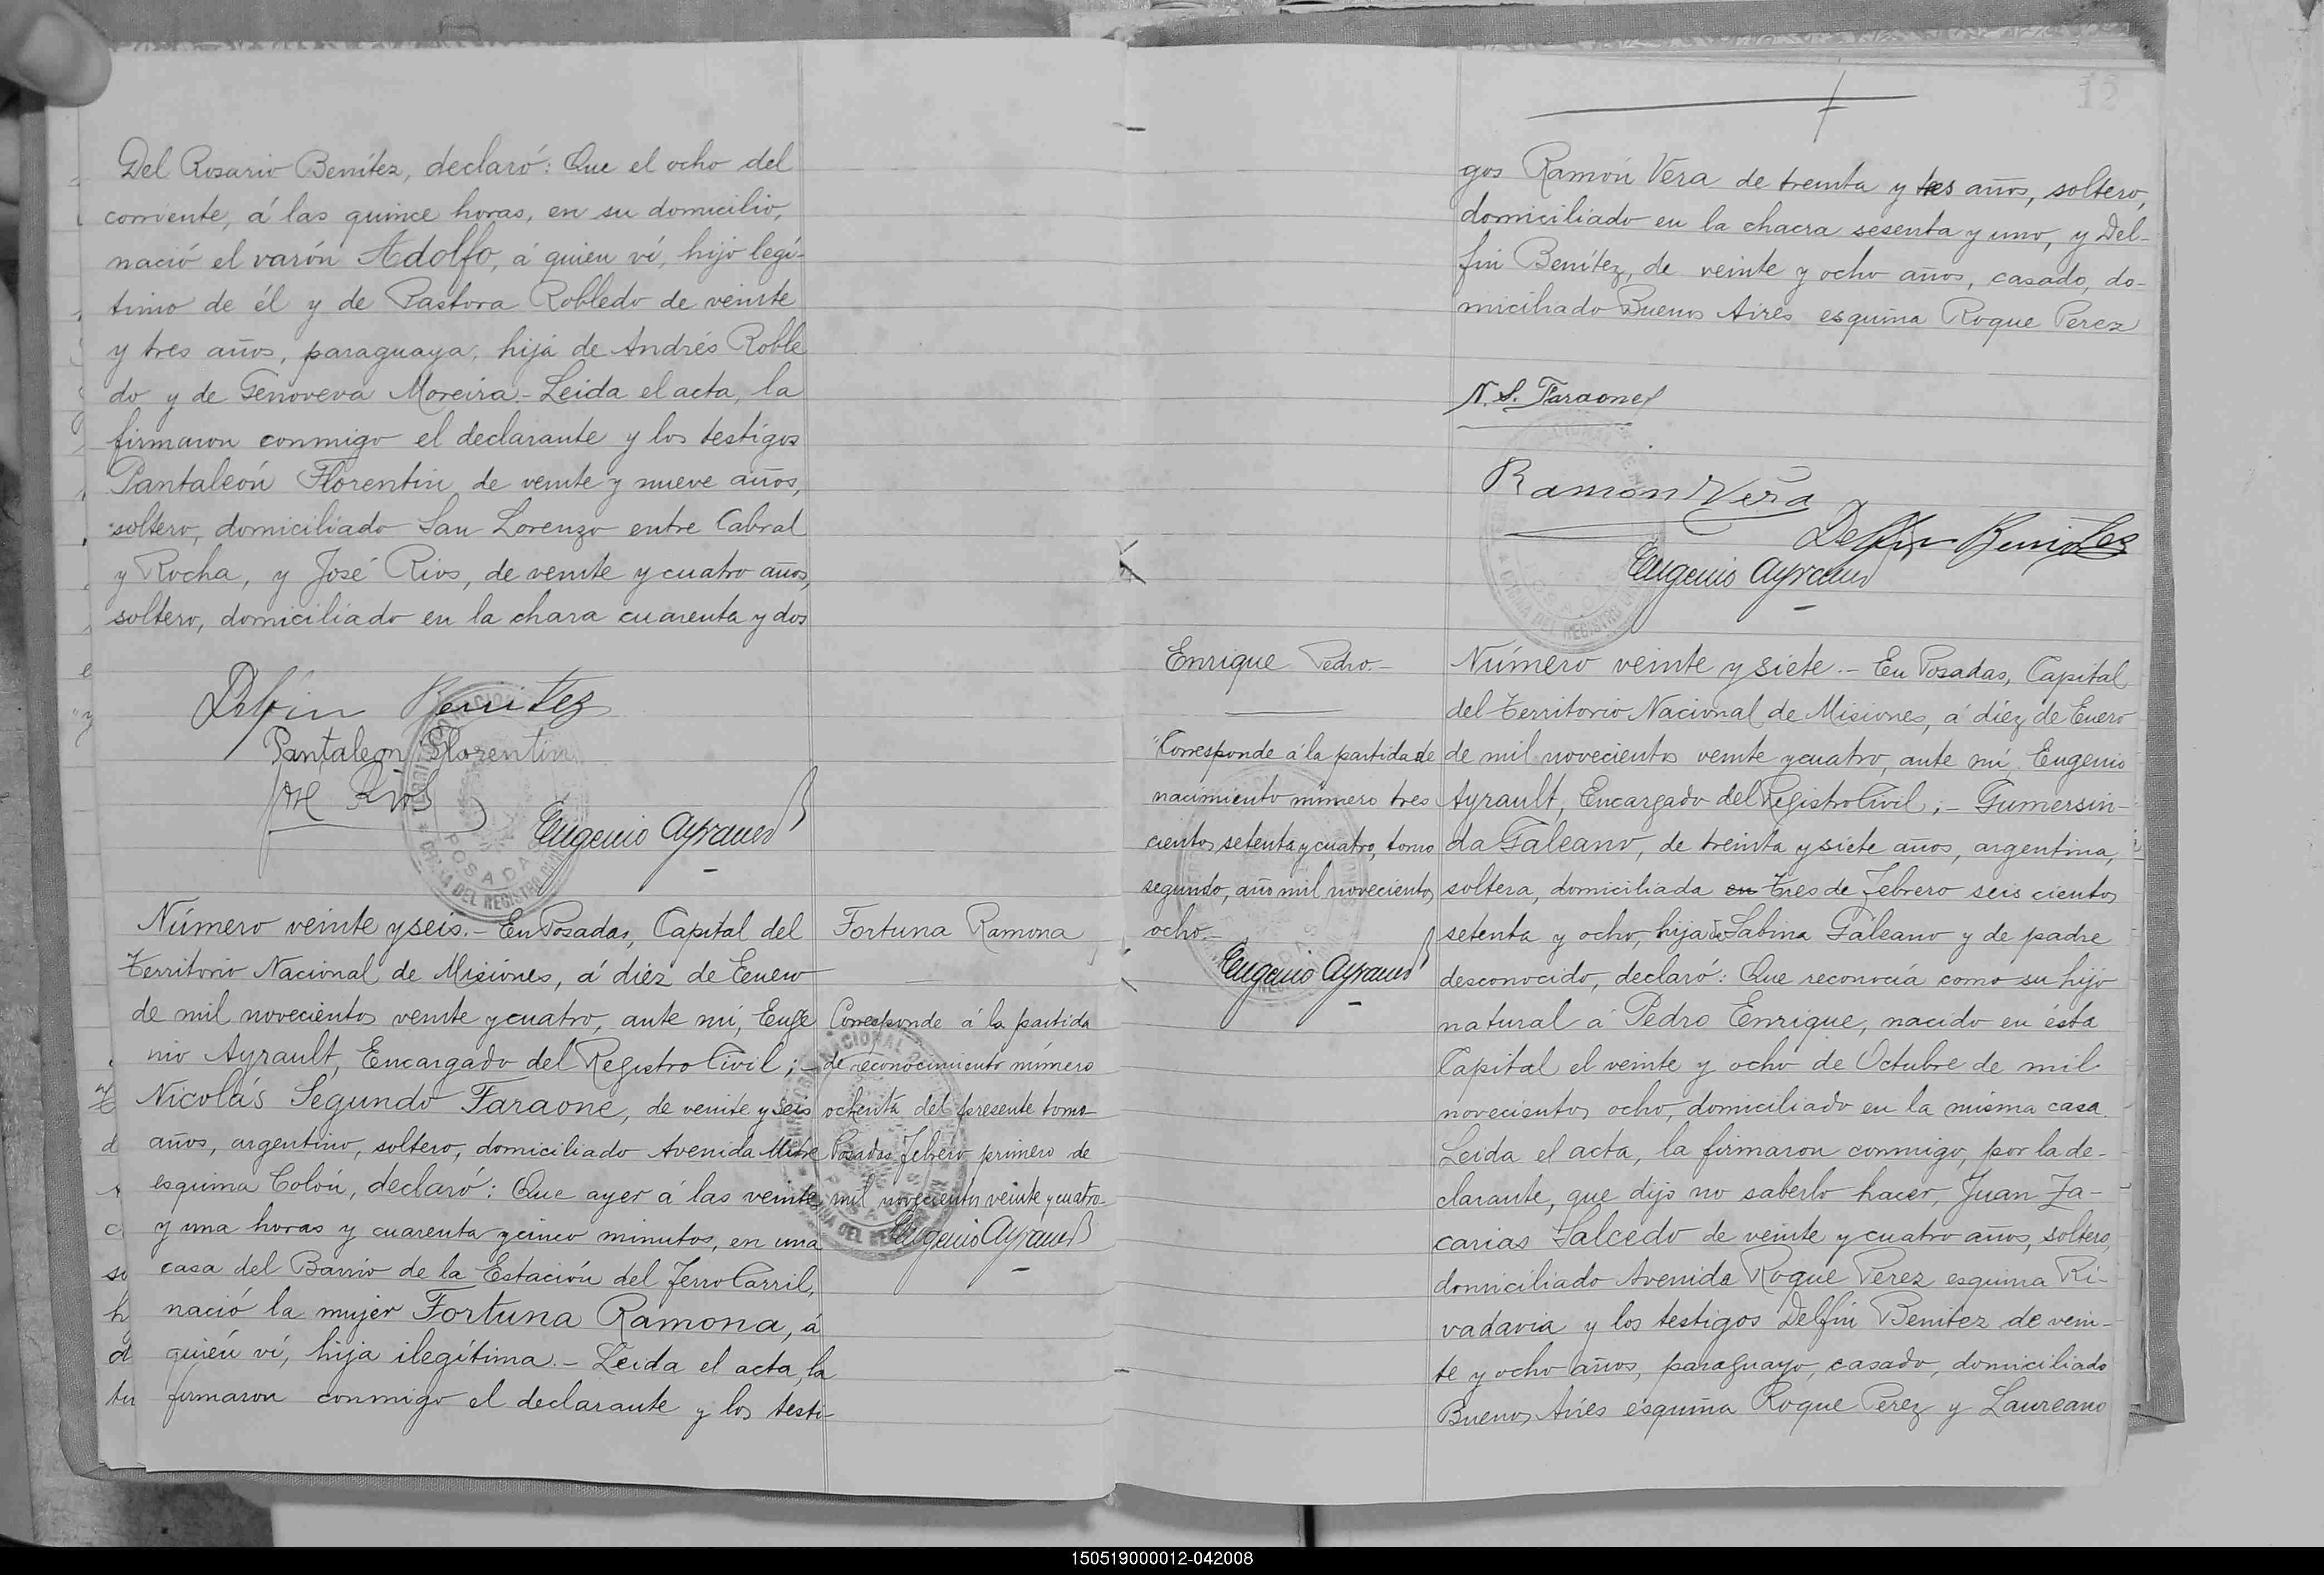 Del Rosario Benítez, declaró: Que el ocho del
corriente, á las quince horas, en su domicilio,
nació el varón Adolfo, á quien ví, hijo legí-
timo de él y de Pastora Robledo de veinte
y tres años, paraguaya, hija de Andrés Roble
do y de Genoveva Moreira.- Leida el acta, la
firmaron conmigo el declarante y los testigos
Pantaleón Florentin de veinte y nueve años,
soltero, domiciliado San Lorenzo entre Cabral
y Rocha, y José Rios, de veinte y cuatro años,
soltero, domiciliado en la chara cuarenta y dos
Delfin Benitez
Pantaleon Florentin
José Rios
Eugenio Ayrault
Número veinte y seis.- En Posadas, Capital del
Territorio Nacional de Misiones, á diéz de Enero
de mil novecientos veinte y cuatro, ante mi, Euge
nio Ayrault, Encargado del Registro Civil;-
Nicolás Segundo Faraone, de veinte y seis
años, argentino, soltero, domiciliado Avenida Mitre
esquina Colón, declaró: Que ayer á las veinte
y una horas y cuarenta y cinco minutos, en una
casa del Barrio de la Estación del FerroCarril,
nació la mujer Fortuna Ramona, á
quién ví, hija ilegítima.- Leida el acta, la
firmaron conmigo el declarante y los testi-
Fortuna Ramona
Corresponde á la partida
de reconocimiento número
ochenta del presente tomo
Posadas Febrero primero de
mil novecientos veinte y cuatro
Eugenio Ayrault
12
gos Ramón Vera de treinta y tres años, soltero,
domiciliado en la chacra sesenta y uno, y Del-
fin Benítez, de veinte y ocho años, casado, do-
miciliado Buenos Aires esquina Roque Perez
N. S. Faraone
Ramón Vera
Delfin Benitez
Eugenio Ayrault
Enrique Pedro.-
"Corresponde á la partida de
nacimiento número tres
cientos setenta y cuatro, tomo
segundo, año mil novecientos
ocho.-
Eugenio Ayrault
Número veinte y siete.- En Posadas, Capital
del Territorio Nacional de Misiones, á diéz de Enero
de mil novecientos veinte y cuatro, ante mi, Eugenio
Ayrault, Encargado del Registro Civil;- Gumersin-
da Galeano, de treinta y siete años, argentina,
soltera, domiciliada en Tres de Febrero seis cientos
setenta y ocho, hija de Sabina Galeano y de padre
desconocido, declaró: Que reconocía como su hijo
natural á Pedro Enrique, nacido en ésta
Capital el veinte y ocho de Octubre de mil
novecientos ocho, domiciliado en la misma casa.
Leida el acta, la firmaron conmigo, por la de-
clarante, que dijo no saberlo hacer, Juan Za-
carias Salcedo de veinte y cuatro años, soltero,
domiciliado Avenida Roque Perez esquina Ri-
vadavia y los testigos Delfin Benitez de vein-
te y ocho años, paraguayo, casado, domiciliado
Buenos Aires esquina Roque Perez y Laureano
150519000012-042008